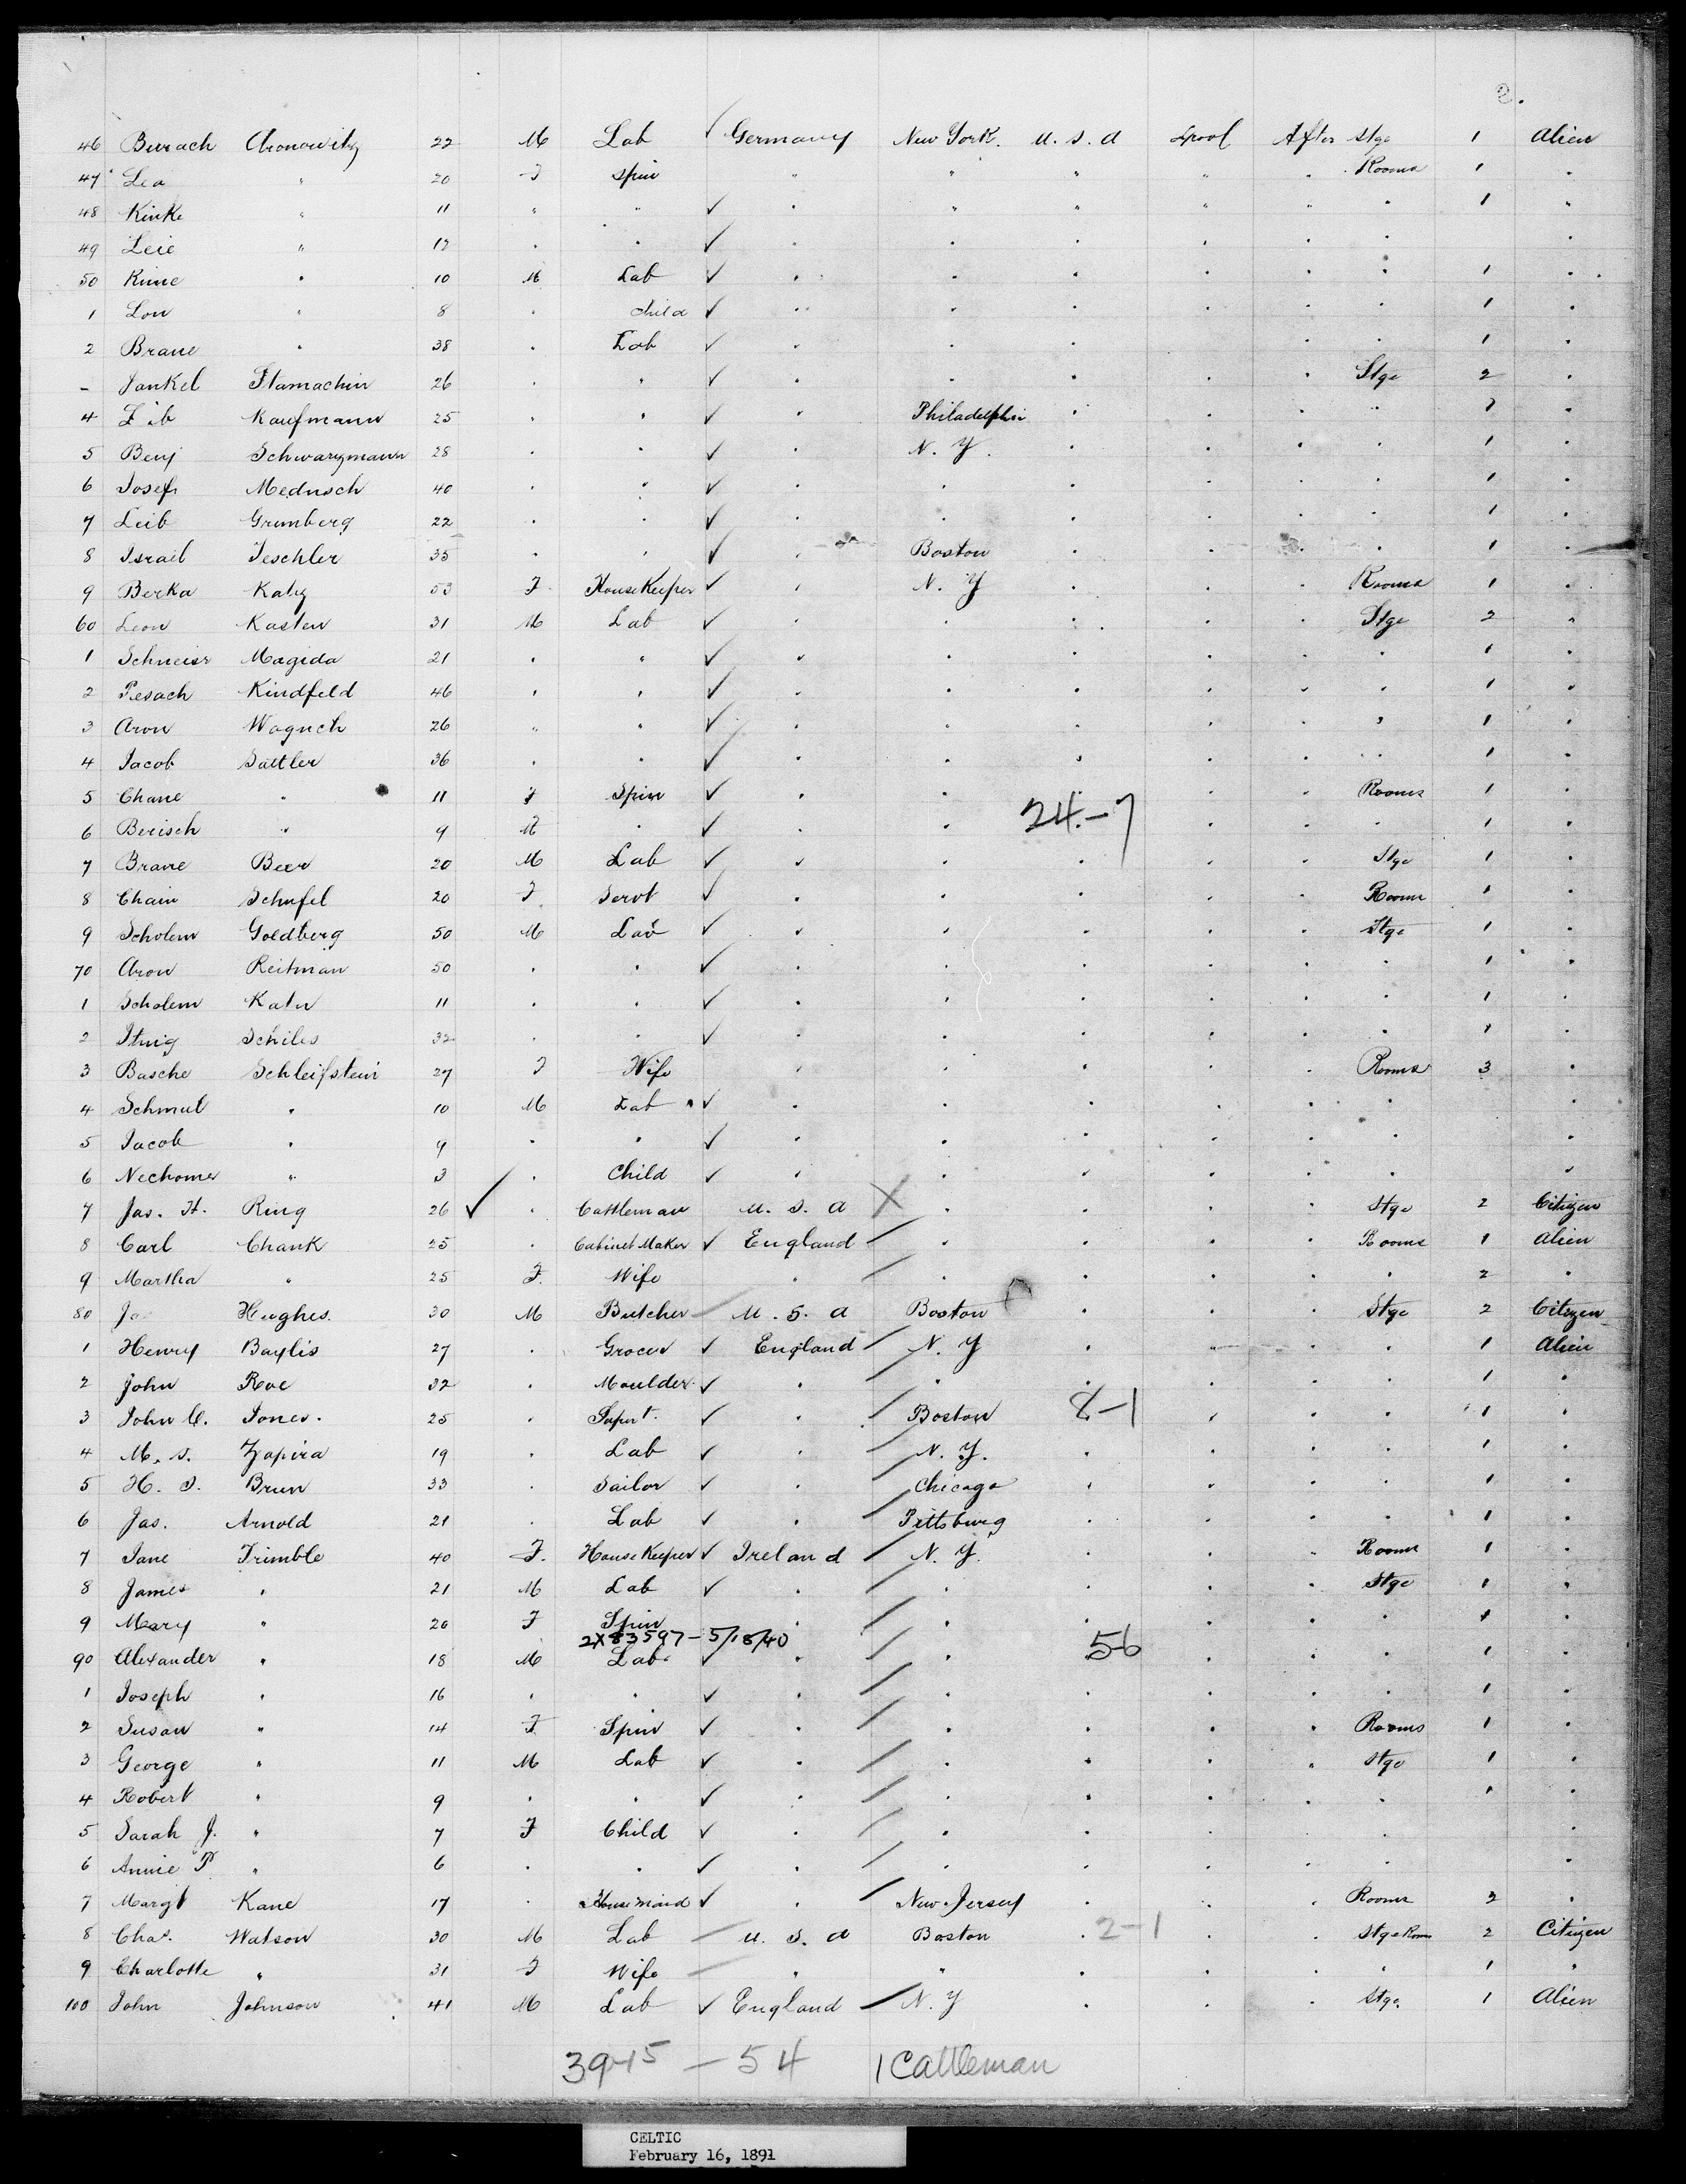 2.
46 Burach Aronowitz 22 M Lab ✓ Germany New York. U. S. A Lpool After Stge 1 Alien
47 Lea " 20 F Spin " " " " . Rooms 1 .
48 Kinke " 11 " " ✓ . " " " " . 1 "
49 Leie " 12 . . ✓ . . . . . . .
50 Kune " 10 M Lab ✓ . . . . . . 1 .
1 Lon " 8 . Child ✓ . . . . . . 1 .
2 Brane " 38 . Lab ✓ . . . . . 1 .
- Jankel Stamachin 26 . " ✓ . . . . . Stge 2 .
4 Kaufmann 25 . . ✓ . Philadelphi . . . . 1 .
5 Benj Schwarzmann 28 . . ✓ . N. Y. . . . . 1 .
6 Josef Mednsch 40 . . ✓ . . . . . . 1 .
7 Leib Grunberg 22 . . ✓ . . . . . . 1 .
8 Israel Teschler 35 . . ✓ . Boston . . . . 1 .
9 Berka Katz 53 F HouseKeeper ✓ . N. Y . . . Rooms 1 .
60 Leon Kasten 31 M Lab ✓ . . . . . Stge 2 .
1 Schneisr Magida 21 . " ✓ . . . . . . 1 .
2 Pesach Kindfeld 46 . . ✓ . . . . . . 1 .
3 Aron Wagnch 26 . . ✓ . . . . . . 1 .
4 Jacob Sattler 36 . . ✓ . . . . . . 1 .
5 Chane " 11 F Spin ✓ . . . . . Rooms 1 .
6 Berisch " 9 M . ✓ . . 24.-7 . . . 1 .
7 Brane Beer 20 M Lab ✓ . . . . . Stge 1 .
8 Chain Schufel 20 F. Servt ✓ . . . . . Rooms 1 .
9 Scholem Goldberg 50 M Lab ✓ . . . . . Stge 1 .
70 Aron Reitman 50 . . ✓ . . . . . . 1 .
1 Scholem Katn 11 . . ✓ . . . . . . 1 .
2 Itzig Schiles 32 . . ✓ . . . . . . 1 .
3 Basche Schleifstein 27 F Wife . . . . . Rooms 3 .
4 Schmul " 10 M Lab ✓ . . . . . . .
5 Jacob . 9 . " ✓ . . . . . . .
6 Nechome " 3 . Child ✓ . . . . . . .
7 Jas. H. Ring 26 ✓ . Cattleman U. S. A X . . . . Stge 2 Citizen
8 Carl Chank 25 . Cabinet Maker ✓ England / . . . . Rooms 1 Alien
9 Martha " 25 F. Wife . / . . . . . 2 .
80 Hughes. 30 M Butcher U. S. A Boston . . . Stge 2 Citizen
1 Henry Baylis 27 . Grocer ✓ England / N. Y . . . . 1 Alien
2 John Roe 32 . Moulder ✓ . / . . . . . 1 .
3 John C. Jones. 25 . Supert. ✓ . / Boston 8-1 . . . 1 .
4 M. S. Zapira 19 . Lab ✓ . / N. Y. . . . . 1 .
5 H. S. Brun 33 . Sailor ✓ . / Chicago . . . . 1 .
6 Jas. Arnold 21 . Lab ✓ . / Pittsburg . . . . 1 .
7 Jane Trimble 40 F. HouseKeeper ✓ Ireland / N. Y. . . . Rooms 1 .
8 James " 21 M Lab ✓ . / . . . . Stge 1 .
9 Mary " 20 F Spin . / . . . . . 1 .
2X83597-5/18/40 56
90 Alexander " 18 M Lab ✓ . / . . . . 1 .
1 Joseph " 16 . . ✓ . / . . . . . 1 .
2 Susan " 14 F. Spin ✓ . / . . . . Rooms 1 .
3 George " 11 M Lab ✓ . / . . . . Stge 1 .
4 Robert " 9 . . ✓ . / . . . . . 1 .
5 Sarah J. " 7 F Child ✓ . / . . . . . .
6 Annie P " 6 . . ✓ . / . . . . . .
7 Margt Kane 17 . Housemaid ✓ . / New Jersey . . . Rooms 2 .
8 Chas. Watson 30 M Lab U. S. A Boston . 2-1 . . Stge Rooms 2 Citizen
9 Charlotte " 31 F Wife . " . . . . 1 "
100 John Johnson 41 M Lab ✓ England / N. Y . . . Stge. 1 Alien
39-15 - 54 1 Cattleman
CELTIC
February 16, 1891